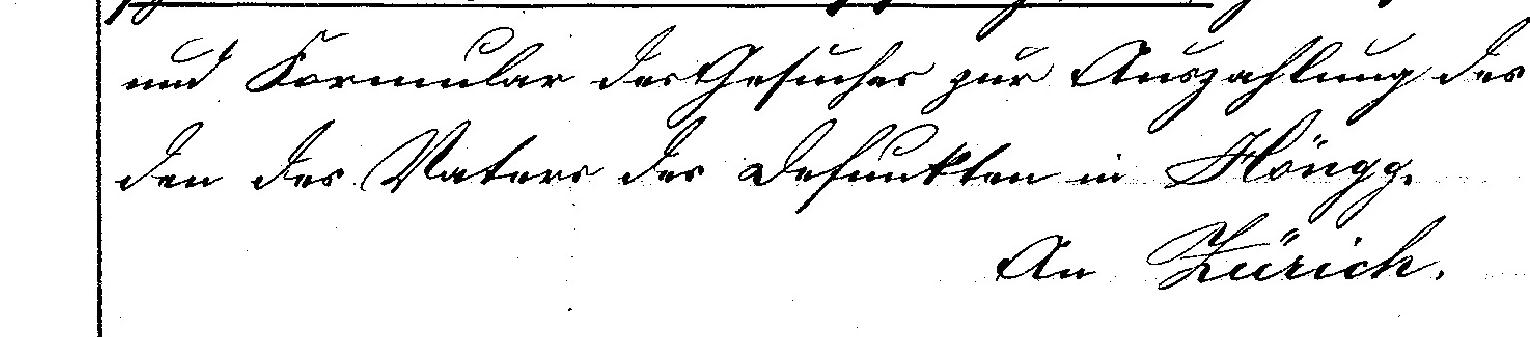 und Formular des Gesuches zur Auszahlung des
den des Vaters des Defunkten in Höngg.
An Zürich.